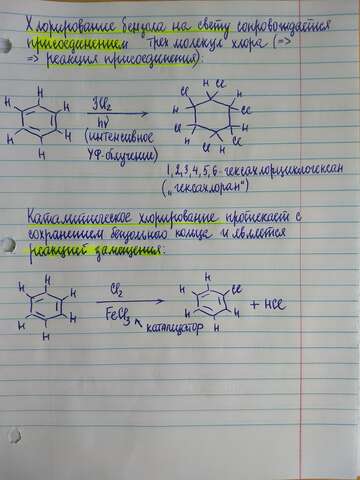 Хлорирование бензола на свету сопровождается
присоединением трех молекул хлора (=>
=> реакция присоединения):
H H H H H H
3Cl₂
hν
(интенсивное
УФ-облучение)
H Cl H Cl H Cl H Cl H Cl H Cl
1,2,3,4,5,6-гексахлорциклогексан
(„гексахлоран")
Каталитическое хлорирование протекает с
сохранением бензольного кольца и является
реакцией замещения:
H H H H H H
Cl₂
FeCl₃ катализатор
H Cl H H H H
+ HCl